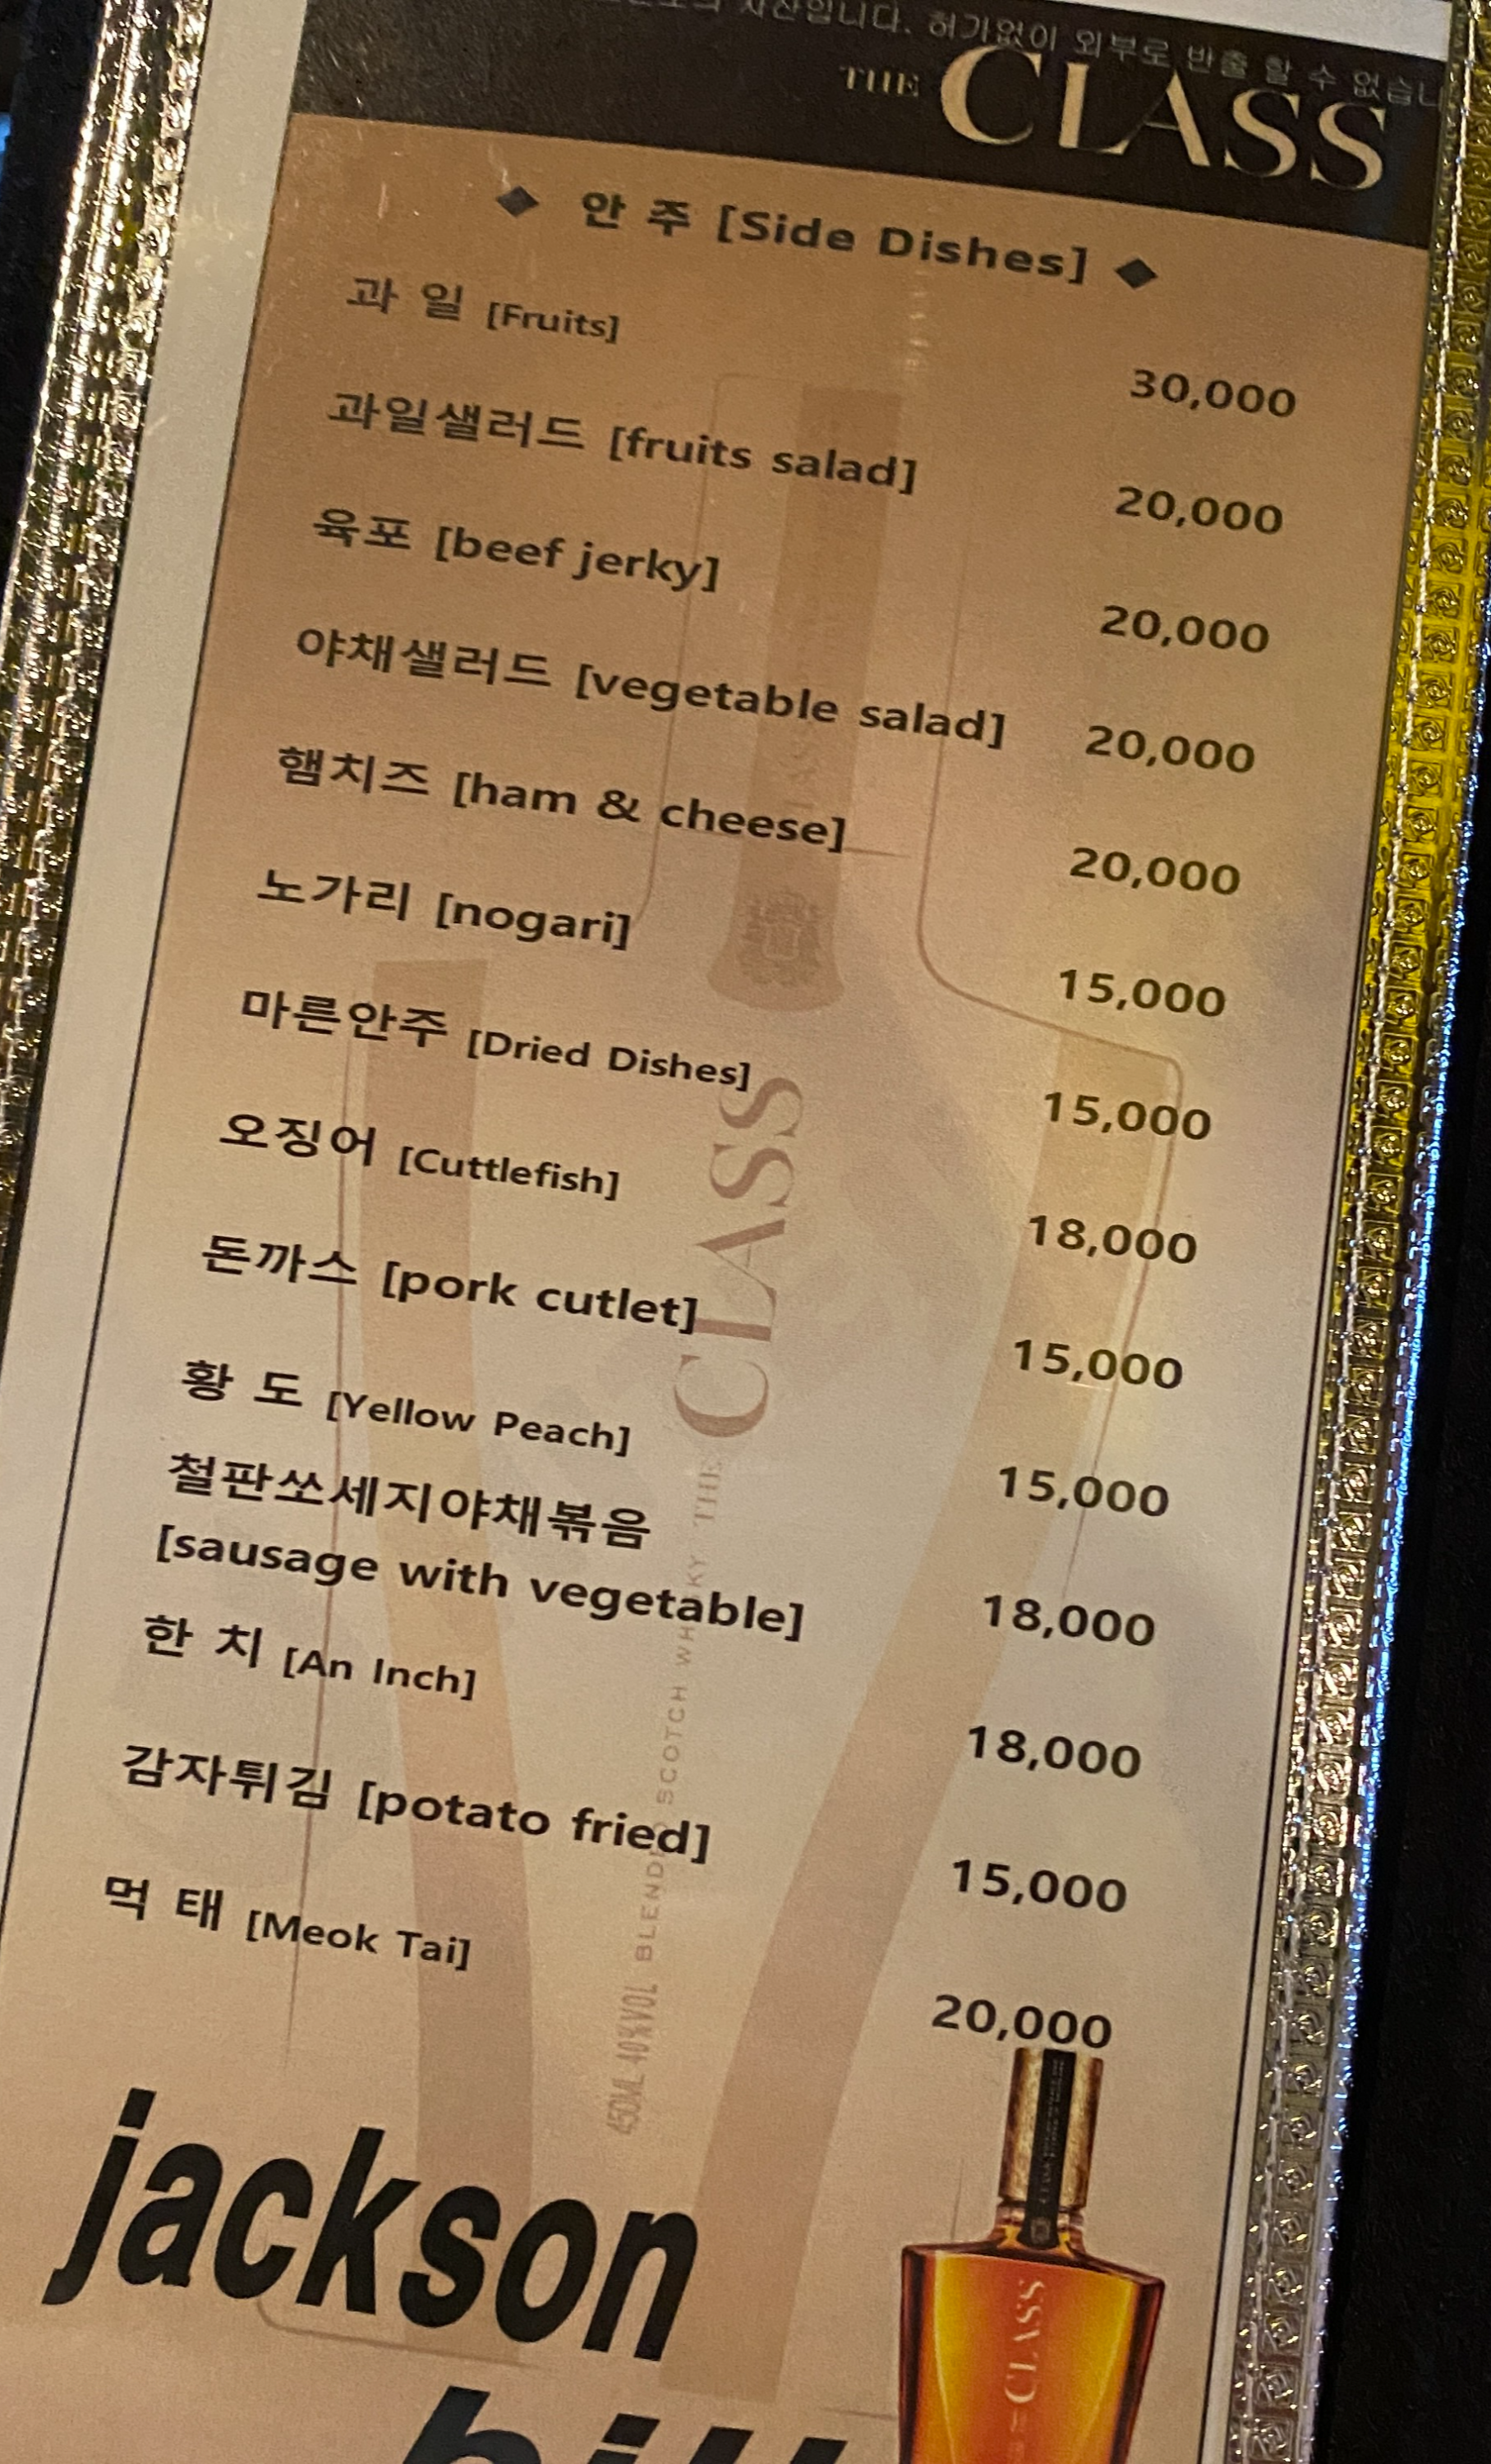 자산입니다. 허가없이 외부로 반출 할 수 없습니
THE CLASS
◆ 안 주 [Side Dishes] ◆
과 일 [Fruits] 30,000
과일샐러드 [fruits salad] 20,000
육포 [beef jerky] 20,000
야채샐러드 [vegetable salad] 20,000
햄치즈 [ham & cheese] 20,000
노가리 [nogari] 15,000
마른안주 [Dried Dishes] 15,000
오징어 [Cuttlefish] 18,000
돈까스 [pork cutlet] 15,000
황 도 [Yellow Peach] 15,000
철판쏘세지야채볶음
[sausage with vegetable] 18,000
한 치 [An Inch] 18,000
감자튀김 [potato fried] 15,000
먹 태 [Meok Tai] 20,000
THE CLASS
450ML 40%VOL BLENDED SCOTCH WHISKY
jackson
CLASS